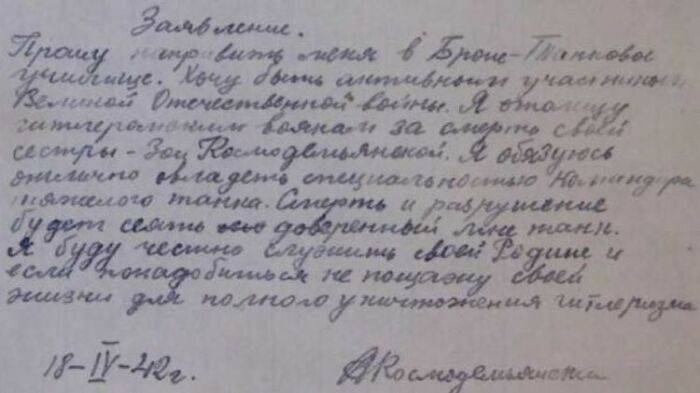 Заявление.
Прошу направить меня в Броне-Танковое
училище. Хочу быть активным участником
Великой Отечественной войны. Я отомщу
гитлеровским воякам за смерть своей
сестры - Зои Космодемьянской. Я обязуюсь
отлично овладеть специальностью Командира
тяжелого танка. Смерть и разрушение
будет сеять доверенный мне танк.
Я буду честно служить своей Родине и
если понадобиться не пощажу своей
жизни для полного уничтожения гитлеризма
18-IV-42г. АКосмодемьянский